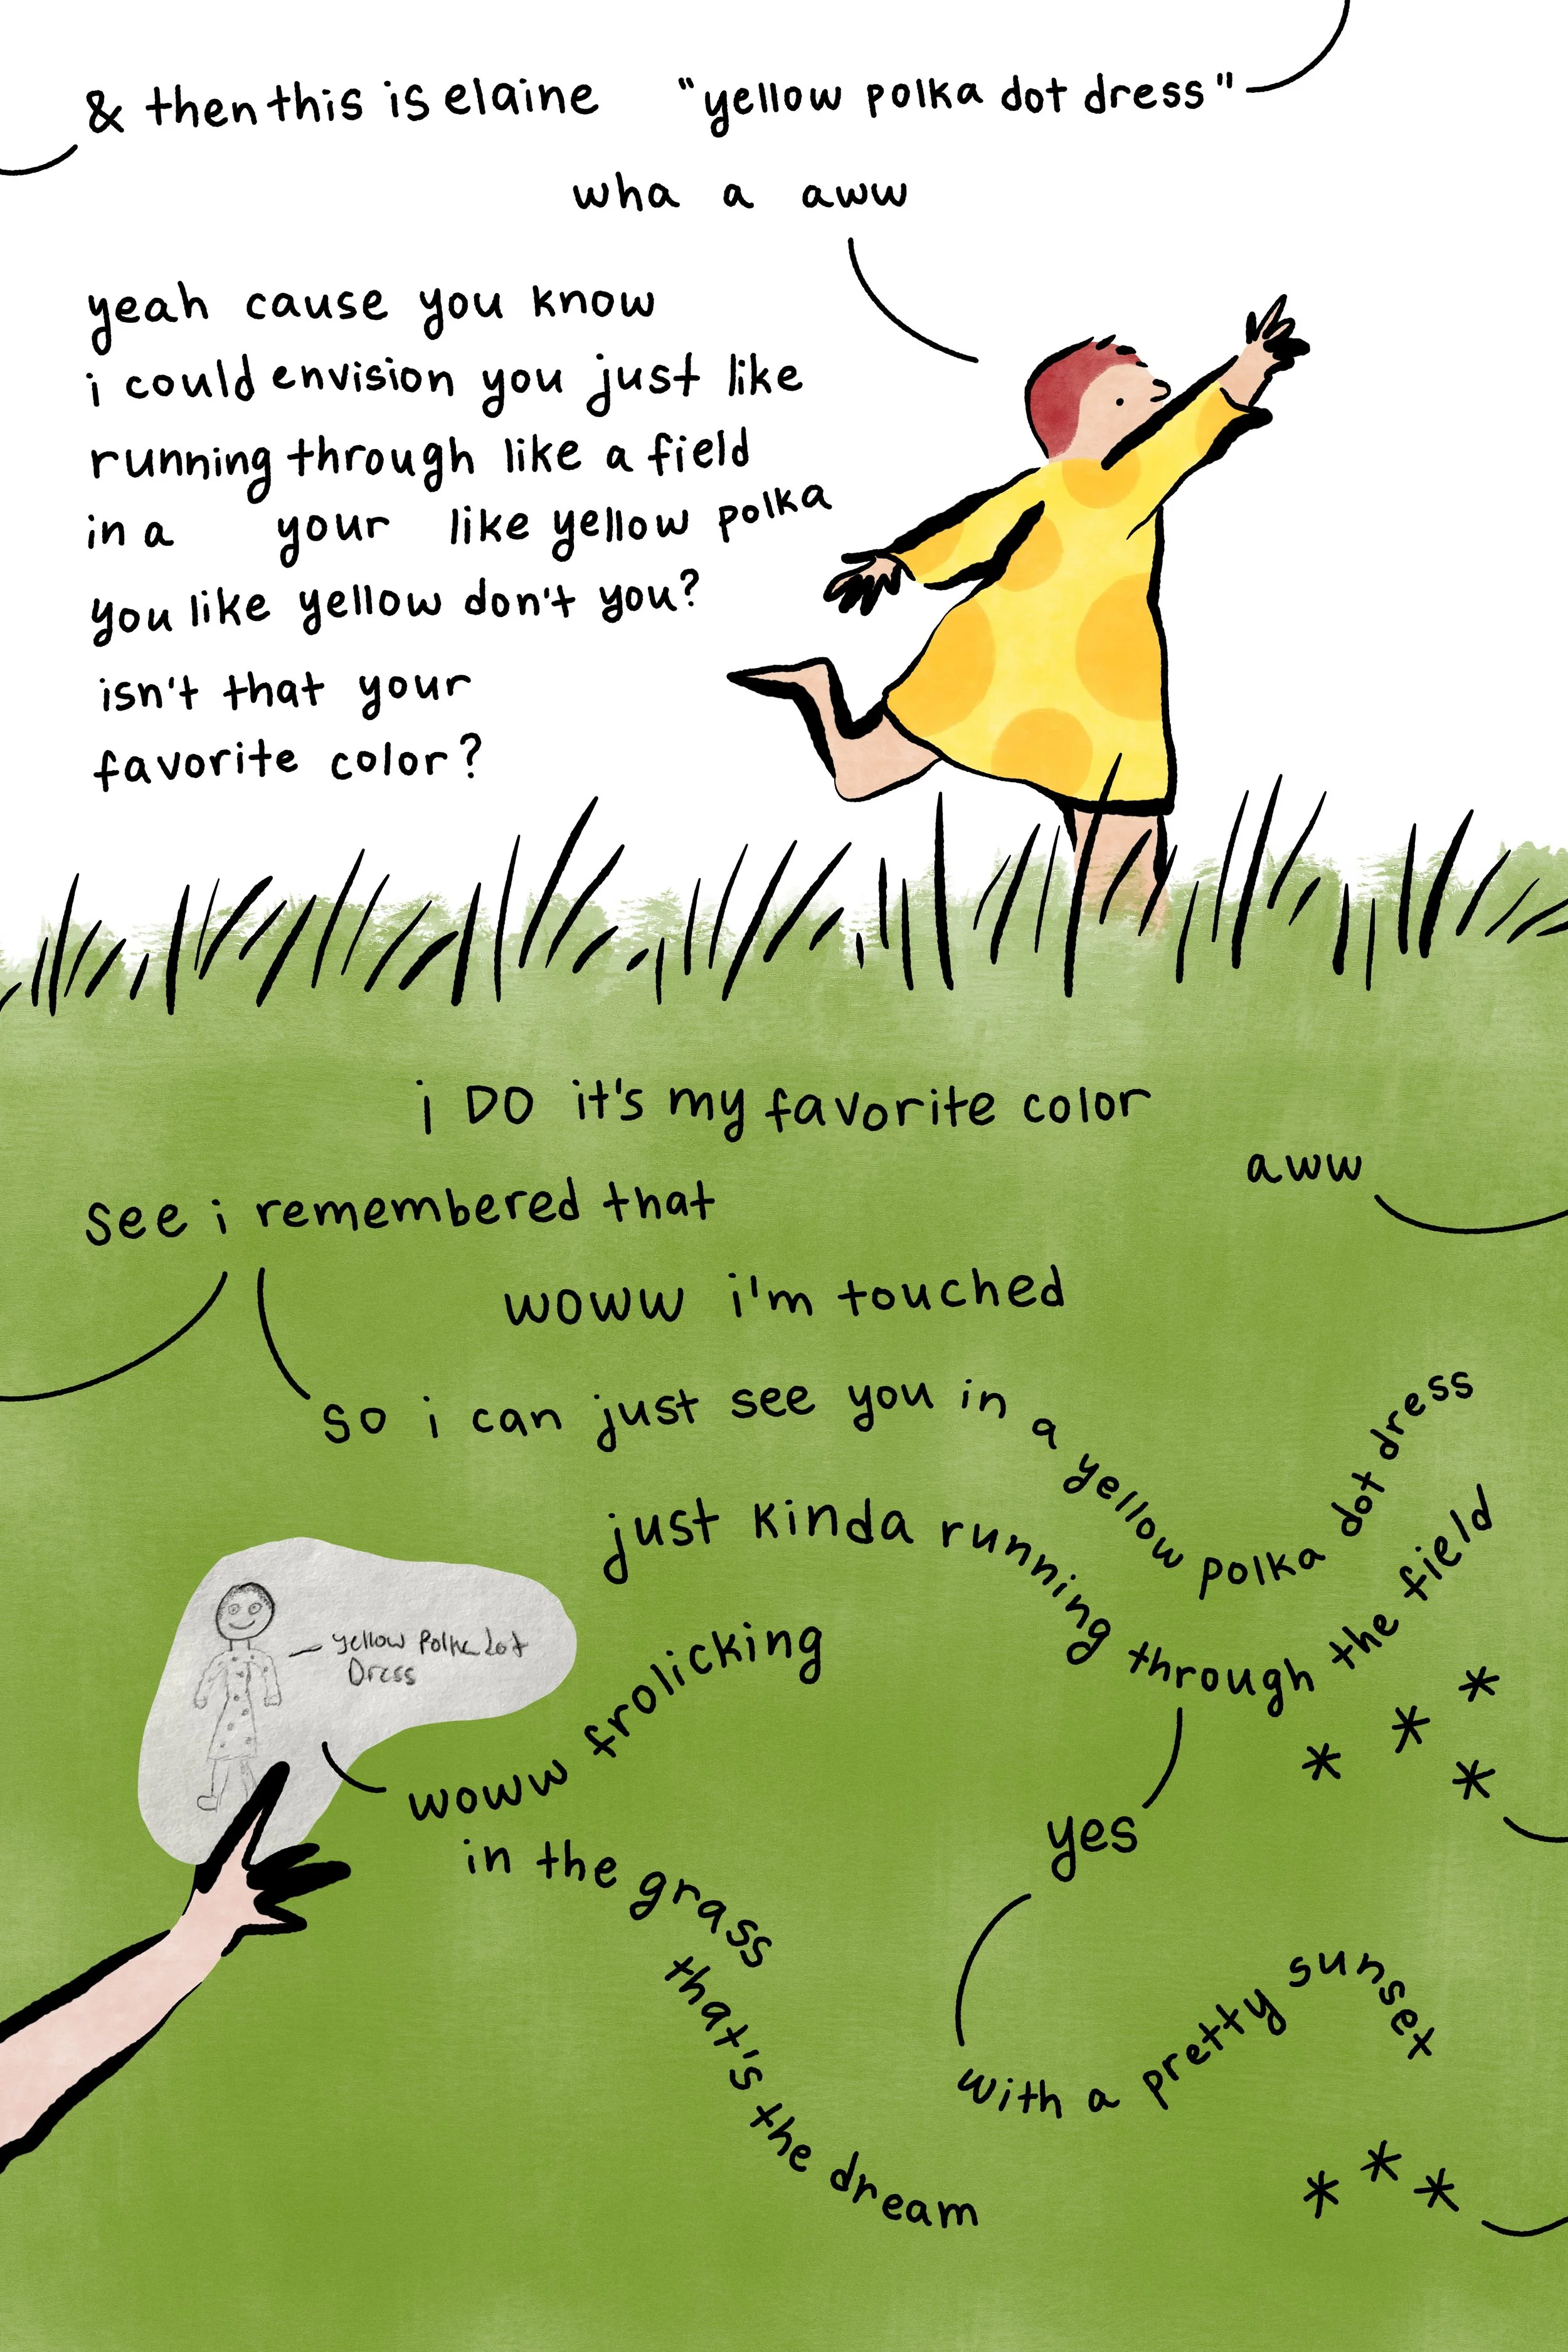 & then this is elaine "yellow polka dot dress"
wha a aww
yeah cause you know
i could envision you just like
running through like a field
in a your like yellow polka
you like yellow don't you?
isn't that your
favorite color?
i DO it's my favorite color
aww
see i remembered that
woww i'm touched
so i can just see you in a yellow polka dot dress
just kinda running through the field
* * * *
yellow Polka Dot
Dress
woww frolicking
in the grass
that's the dream
yes
with a pretty sunset
* * *